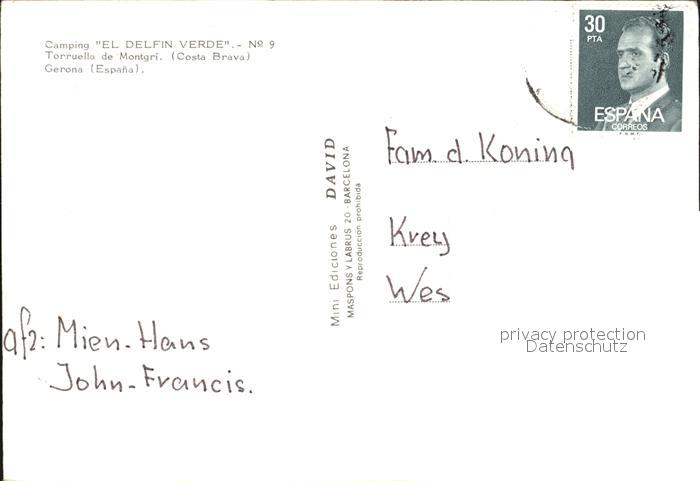 Camping "EL DELFIN VERDE".- Nº 9
Torruella de Montgrí. (Costa Brava)
Gerona (España).
30
PTA
ESPAÑA
CORREOS
F.N.M.T.
Mini Ediciones DAVID
MASPONS Y LABRUS 20 - BARCELONA
Reproducción prohibida
Fam. d. Koning
Wes
privacy protection
Datenschutz
afz: Mien-Hans
John-Francis.